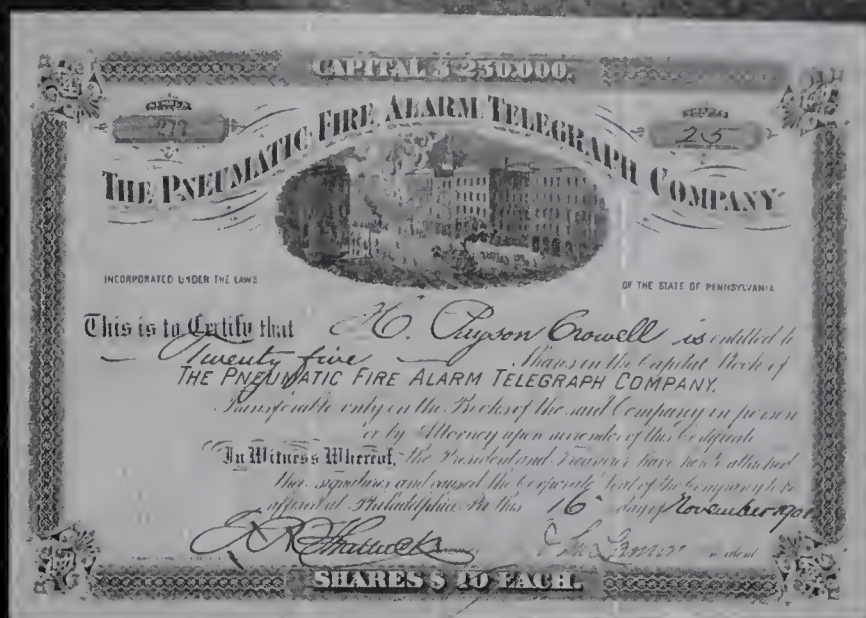 CAPITAL $ 250.000.
25
THE PNEUMATIC FIRE ALARM TELEGRAPH COMPANY
INCORPORATED UNDER THE LAWS OF THE STATE OF PENNSYLVANIA
This is to Certify that H. Payson Crowell is entitled to
Twenty five Shares in the Capital Stock of
THE PNEUMATIC FIRE ALARM TELEGRAPH COMPANY.
Transferable only on the Books of the said Company in person
or by Attorney upon surrender of this Certificate
In Witness Whereof, the President and Treasurer have here attached
their signatures and caused the Corporate Seal of the Company to be
affixed at Philadelphia Pa this 16 day of November 1901
SHARES $ 10 EACH.